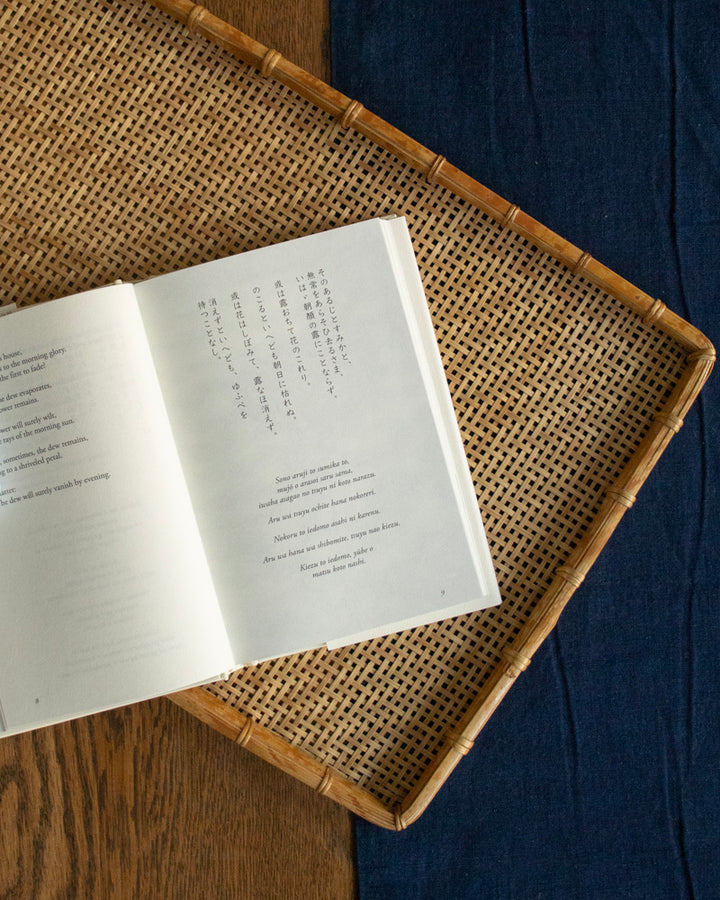 house,
to the morning glory.
the first to fade?
dew evaporates,
remains.
will surely wilt,
rays of the morning sun.
sometimes, the dew remains,
to a shriveled petal.
dew will surely vanish by evening.
8
そのあるじとすみかと、
無常をあらそひ去るさま、
いはゞ朝顔の露にことならず。
或は露おちて花のこれり。
のこるといへども朝日に枯れぬ。
或は花はしぼみて、露なほ消えず。
消えずといへども、ゆふべを
待つことなし。
Sono aruji to sumika to,
mujō o arasoi saru sama,
iwaba asagao no tsuyu ni koto narazu.
Aru wa tsuyu ochite hana nokoreri.
Nokoru to iedomo asahi ni karenu.
Aru wa hana wa shibomite, tsuyu nao kiezu.
Kiezu to iedomo, yūbe o
matsu koto nashi.
9